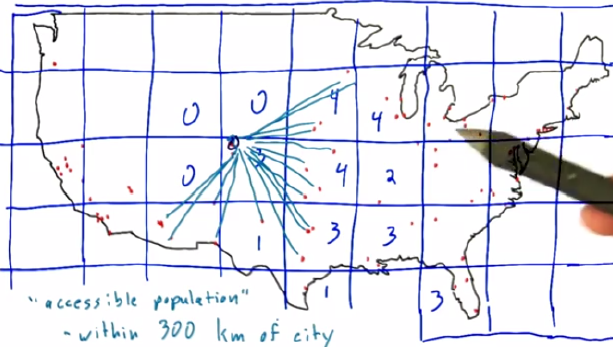 0 0 4 4
0 3 4 2
1 3 3
1 3
"accessible population"
- within 300 km of city